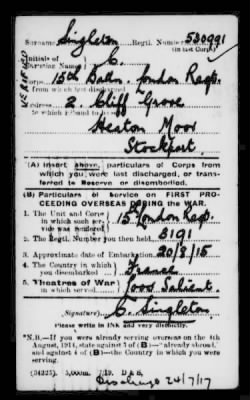 Surname Singleton Regtl. Number 530991
(in last Corps)
Initials of
Christian Name} C.
Corps 15th Battn. London Regt.
from which last discharged
Address 2. Cliff Grove
to which
Heaton Moor
Stockport.
VERIFIED
(A) Insert above, particulars of Corps from
which you were last discharged, or trans-
ferred to Reserve or disembodied.
(B) Particulars of service on FIRST PRO-
CEEDING OVERSEAS DURING THE WAR.
1. The Unit and Corps
in which such ser-
vice was rendered} 15 London Regt.
2. The Regtl. Number you then held. 3191
3. Approximate date of Embarkation. 20/8/15
4. The Country in which
you disembarked} France
5. Theatres of War
in which served. Loos Salient.
(Signature) C. Singleton
Please write in INK and very distinctly.
"N.B.—If you were already serving overseas on the 4th
August, 1914, state against 3 of (B)—"already abroad,"
and against 4 of (B)—the Country in which you were
serving.
(34325). 5,000m. 7/19. D & S.
Discharge 24/7/17